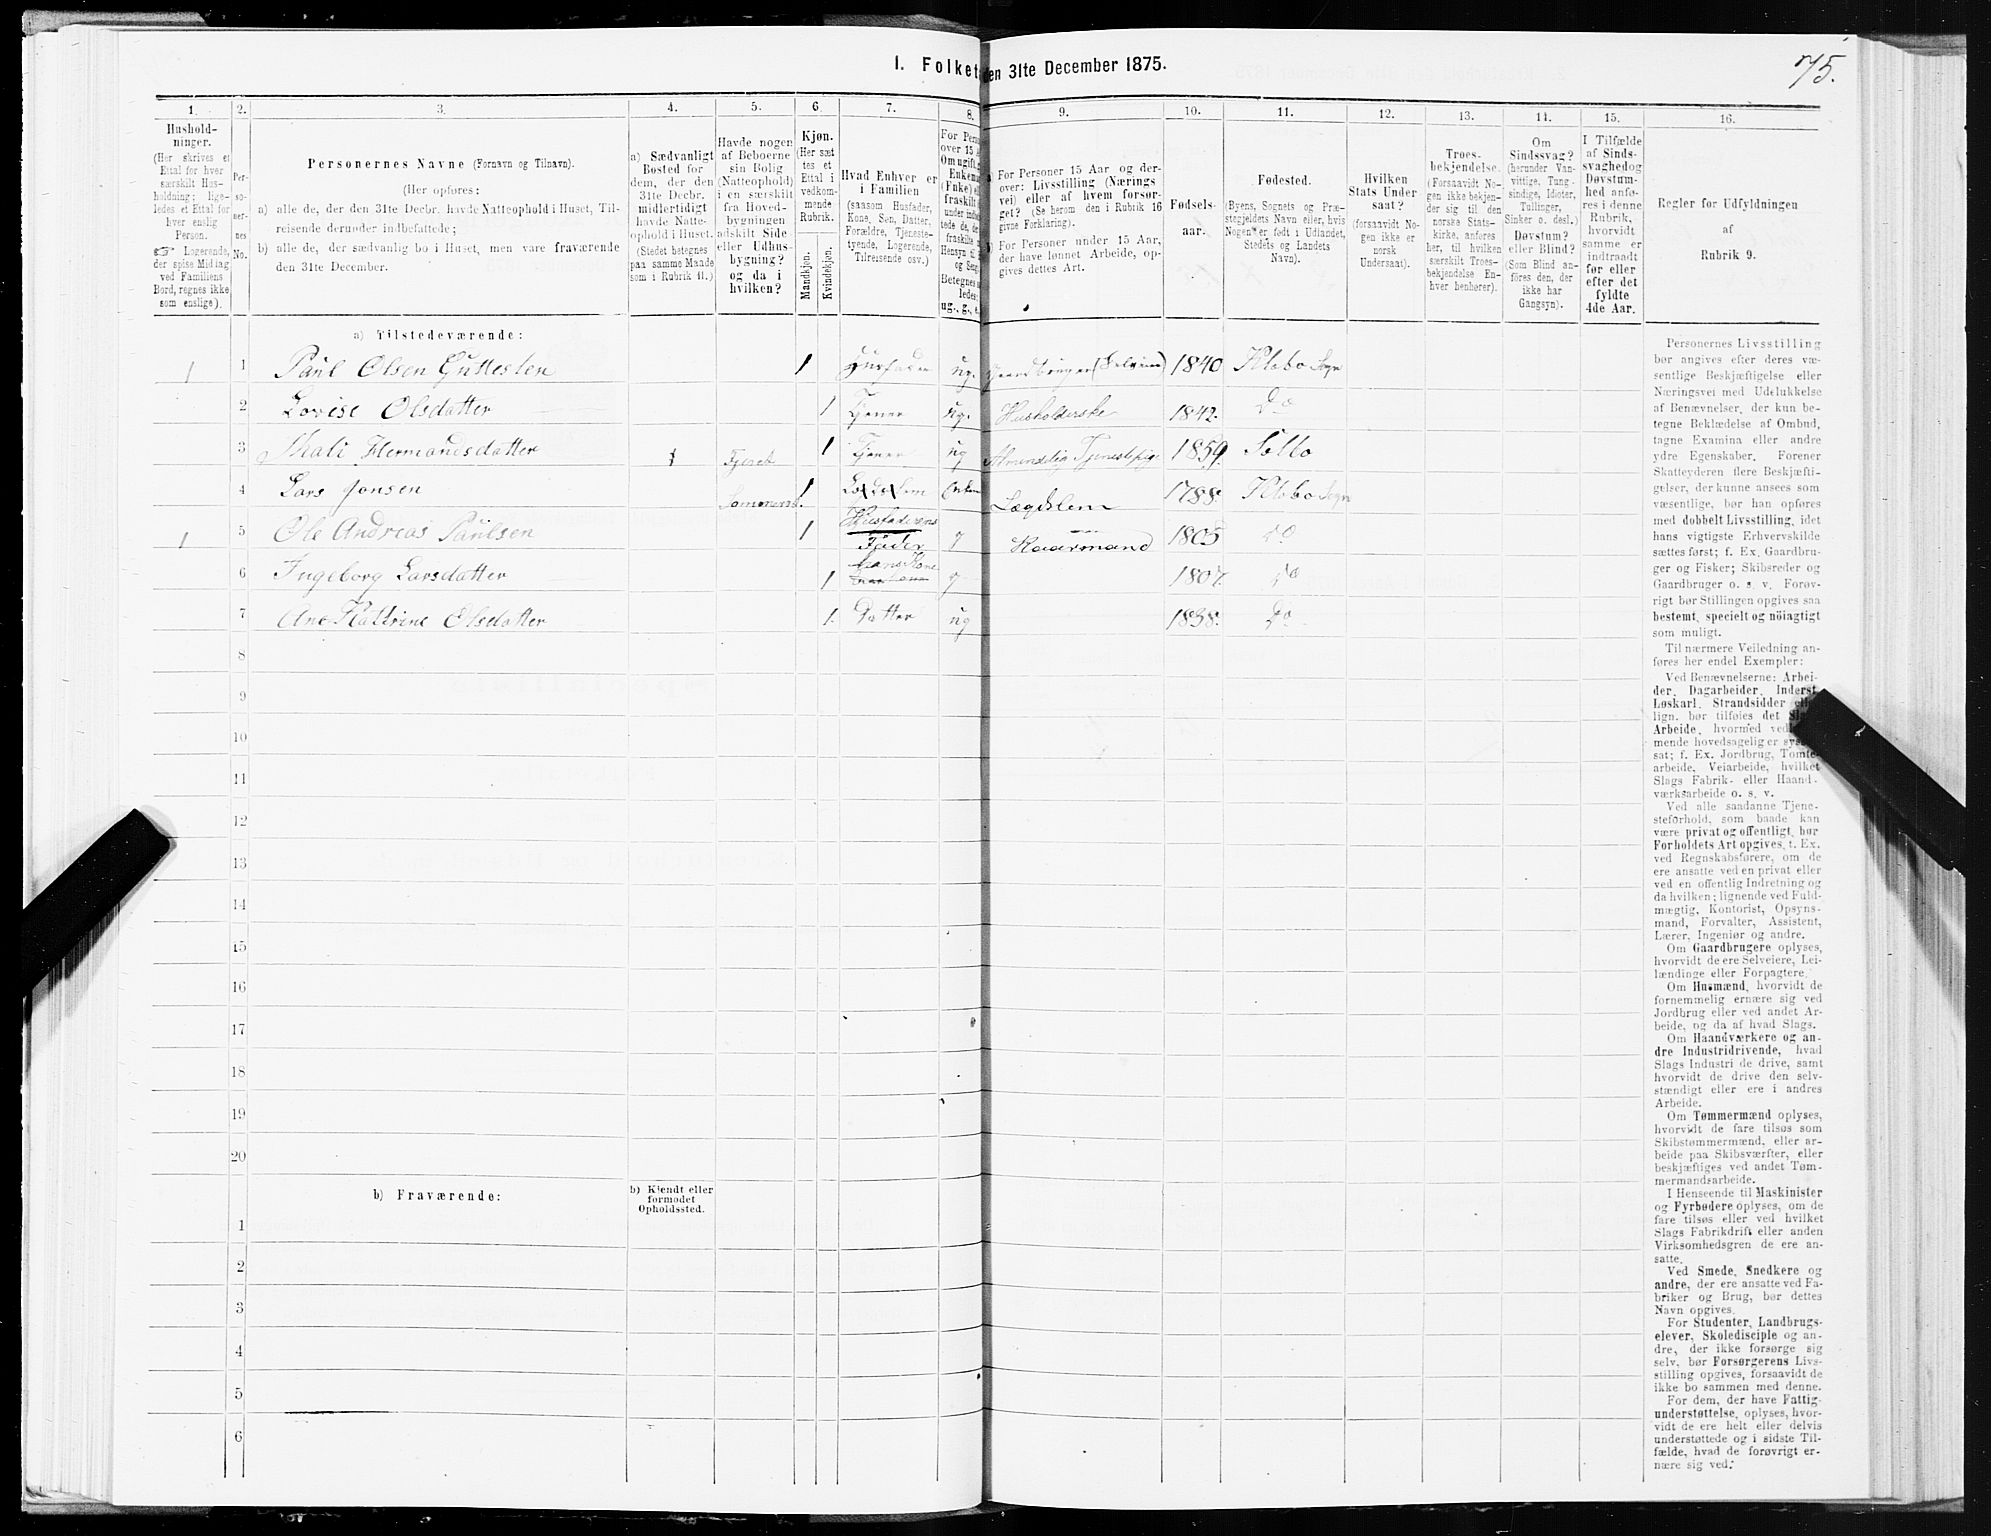 75.
I. Folket
den 31te December 1875.
1. 2. 3. 4. 5. 6. 7. 8. 9. 10. 11. 12. 13. 14. 15. 16.
Hushold-
ninger.
(Her skrives et
Ettal for hver
særskilt Hus-
holdning; lige-
ledes et Ettal for
hver enslig
Person.
☞ Logerende,
der spise Middag
ved Familiens
Bord, regnes ikke
som enslige).
Per-
so-
ner-
nes
No.
Personernes Navne (Fornavn og Tilnavn).
(Her opføres:
a) alle de, der den 31te Decbr. havde Natteophold i Huset, Til-
reisende derunder indbefattede;
b) alle de, der sædvanlig bo i Huset, men vare fraværende
den 31te December.
a) Sædvanligt
Bosted for
dem, der den
31te Decbr.
midlertidigt
havde Natte-
ophold i Huset.
(Stedet betegnes
paa samme Maade
som i Rubrik 11.)
Havde nogen
af Beboerne
sin Bolig
(Natteophold)
i en særskilt
fra Hoved-
bygningen
adskilt Side-
eller Udhus-
bygning?
og da i
hvilken?
Kjøn.
(Her sæt-
tes et
Ettal i
vedkom-
mende
Rubrik.
Mandkjøn.
Kvindekjøn.
Hvad Enhver er
i Familien
(saasom Husfader,
Kone, Søn, Datter,
Forældre, Tjeneste-
tyende, Logerende,
Tilreisende osv.)
For Pers
over 15 a
Om ugift, g
Enkema
(Enke) el
fraskilt
under indbe
tede de, de
fraskilte
Hensyn til
og Seng
Betegnes s
ledes:
ug., g., e
a) For Personer 15 Aar og der-
over: Livsstilling (Nærings-
vei) eller af hvem forsør-
get? (Se herom den i Rubrik 16
givne Forklaring).
b) For Personer under 15 Aar,
der have lønnet Arbeide, op-
gives dettes Art.
Fødsels-
aar.
Fødested.
(Byens, Sognets og Præ-
stegjeldets Navn eller, hvis
Nogen er født i Udlandet,
Stedets og Landets
Navn).
Hvilken
Stats Under-
saat?
(forsaavidt No-
gen ikke er
norsk
Undersaat).
Troes-
bekjendelse.
(Forsaavidt No-
gen ikke bekjen-
der sig til den
norske Stats-
kirke, anføres
her, til hvilken
særskilt Troes-
bekjendelse En-
hver henhører).
Om
Sindssvag?
(herunder Van-
vittige, Tung-
sindige, Idioter,
Tullinger,
Sinker o. desl.)
Døvstum?
eller Blind?
(Som Blind an-
føres den, der
ikke har
Gangsyn).
I Tilfælde
af Sinds-
svaghed og
Døvstum-
hed anfø-
res i denne
Rubrik,
hvorvidt
samme er
indtraadt
før eller
efter det
fyldte
4de Aar.
Regler for Udfyldningen
af
Rubrik 9.
a) Tilstedeværende:
1 1 Paul Olsen Guttesten 1 Husfader ug. Gaardbruger (Selveier) 1840 Klæbo Sogn
2 Lovise Olsdatter 1 Tjener ug. Husholderske 1842. Do
3 Mali Hermandsdatter 1 Fjøset 1 Tjener ug Almindelig Tjenestepige 1859. Selbo
4 Lars Jonsen 1 Lægdslem 1788. Klæbo Sogn
1 5 Ole Andreas Paulsen 1 Husfaderens
Fader g Kaarmand 1805 Do
6 Ingeborg Larsdatter 1 hans Kone g 1807. Do
7 Ane Kattrine Olsdatter 1. Datter ug 1838. Do
8
9
10
11
12
13
14
15
16
17
18
19
20
b) Fraværende:
b) Kjendt eller
formodet
Opholdssted.
1
2
3
4
5
6
Personernes Livsstilling
bør angives efter deres væ-
sentlige Beskjæftigelse eller
Næringsvei med Udelukkelse
af Benævnelser, der kun be-
tegne Beklædelse af Ombud,
tagne Examina eller andre
ydre Egenskaber. Forener
Skatteyderen flere Beskjæfti-
gelser, der kunne ansees som
væsentlige, bør han opføres
med dobbelt Livsstilling, idet
hans vigtigste Erhvervskilde
sættes først; f. Ex. Gaardbru-
ger og Fisker; Skibsreder og
Gaardbruger o. s. v. Forøv-
rigt bør Stillingen opgives saa
bestemt, specielt og nøiagtigt
som muligt.
Til nærmere Veiledning an-
føres her endel Exempler:
Ved Benævnelserne: Arbei-
der, Dagarbeider, Inderst,
Løskarl, Strandsidder
lign. bør tilføies det
Arbeide, hvormed ved
mende hovedsagelig er
sat; f. Ex. Jordbrug, Tomte-
arbeide, Veiarbeide, hvilket
Slags Fabrik- eller Haand-
værksarbeide o. s. v.
Ved alle saadanne Tjene-
steforhold, som baade kan
være privat og offentligt, bør
Forholdets Art opgives, f. Ex.
ved Regnskabsførere, om de
ere ansatte ved en privat eller
ved en offentlig Indretning og
da hvilken; lignende ved Fuld-
mægtig, Kontorist, Opsyns-
mand, Forvalter, Assistent,
Lærer, Ingeniør og andre.
Om Gaardbrugere oplyses,
hvorvidt de ere Selveiere, Lei-
lændinge eller Forpagtere.
Om Husmænd, hvorvidt de
fornemmelig ernære sig ved
Jordbrug eller ved andet Ar-
beide, og da af hvad Slags.
Om Haandværkere og an-
dre Industridrivende, hvad
Slags Industri de drive, samt
hvorvidt de drive den selv-
stændigt eller ere i andres
Arbeide.
Om Tømmermænd oplyses,
hvorvidt de fare tilsøs som
Skibstømmermænd, eller ar-
beide paa Skibsværfter, eller
beskjæftiges ved andet Tøm-
mermandsarbeide.
I Henseende til Maskinister
og Fyrbødere oplyses, om de
fare tilsøs eller ved hvilket
Slags Fabrikdrift eller anden
Virksomhedsgren de ere an-
satte.
Ved Smede, Snedkere og
andre, der ere ansatte ved Fa-
briker og Brug, bør dettes
Navn opgives.
For Studenter, Landbrugs-
elever, Skoledisciple og an-
dre, der ikke forsørge sig
selv, bør Forsørgerens Livs-
stilling opgives, forsaavidt de
ikke bo sammen med denne.
For dem, der have Fattig-
understøttelse, oplyses, hvor-
vidt de ere helt eller delvis
understøttede og i sidste Til-
fælde, hvad de forøvrigt er-
nære sig ved.